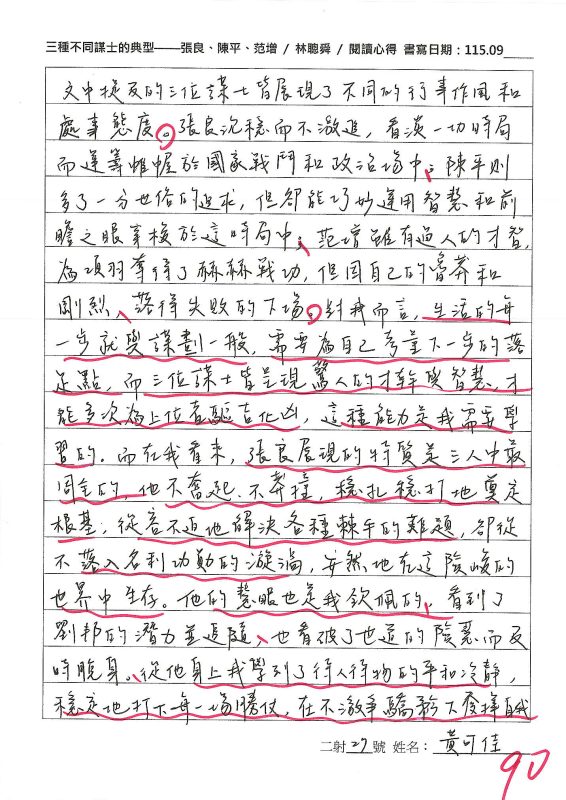 三種不同謀士的典型——張良、陳平、范增 / 林聰舜 / 閱讀心得 書寫日期：115.09
文中提及的三位謀士皆展現了不同的行事作風和
處事態度。張良沉穩而不激進，看淡一切時局
而運籌帷幄於國家戰鬥和政治場中；陳平則
多了一分世俗的追求，但卻能巧妙運用智慧和前
瞻之眼事梭於這時局中；范增雖有過人的才智，
為項羽奪得了赫赫戰功，但因自己的魯莽和
剛烈、落得失敗的下場。對我而言，生活的每
一步就與謀劃一般，需要為自己考量下一步的落
足點，而三位謀士皆呈現驚人的才幹與智慧，才
能多次為上位者驅吉化凶，這種能力是我需要學
習的。而在我看來，張良展現的特質是三人中最
周全的，他不奮起、不莽撞，穩扎穩打地奠定
根基，從容不迫地解決各種棘手的難題，卻從
不落入名利功勳的漩渦，安然地在這險峻的
世界中生存。他的慧眼也是我欽佩的，看到了
劉邦的潛力並追隨、也看破了世道的險惡而及
時脫身。從他身上我學到了待人待物的平和冷靜，
穩定地打下每一場勝仗，在不激爭驕矜下發揮自我
二射27號 姓名：黃可佳
90